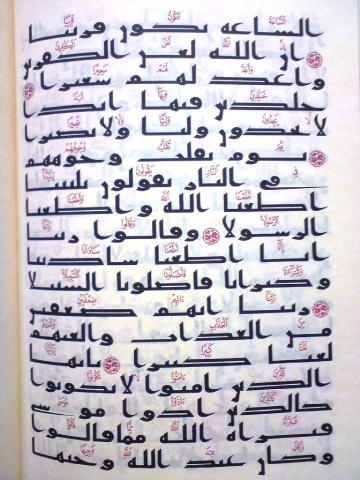 الساعه تكون قريبا
ان الله لعن الكفرين
واعد لهم سعيرا
خلدين فيها ابدا
لا يجدون وليا ولا نصيرا
يوم تقلب وجوههم
في النار يقولون يليتنا
اطعنا الله واطعنا
الرسولا وقالوا ربنا
انا اطعنا سادتنا
وكبرانا فاضلونا السبيلا
ربنا اتهم ضعفين
من العذاب والعنهم
لعنا كبيرا يايها
الذين امنوا لا تكونوا
كالذين اذوا موسى
فبراه الله مما قالوا
وكان عند الله وجيها